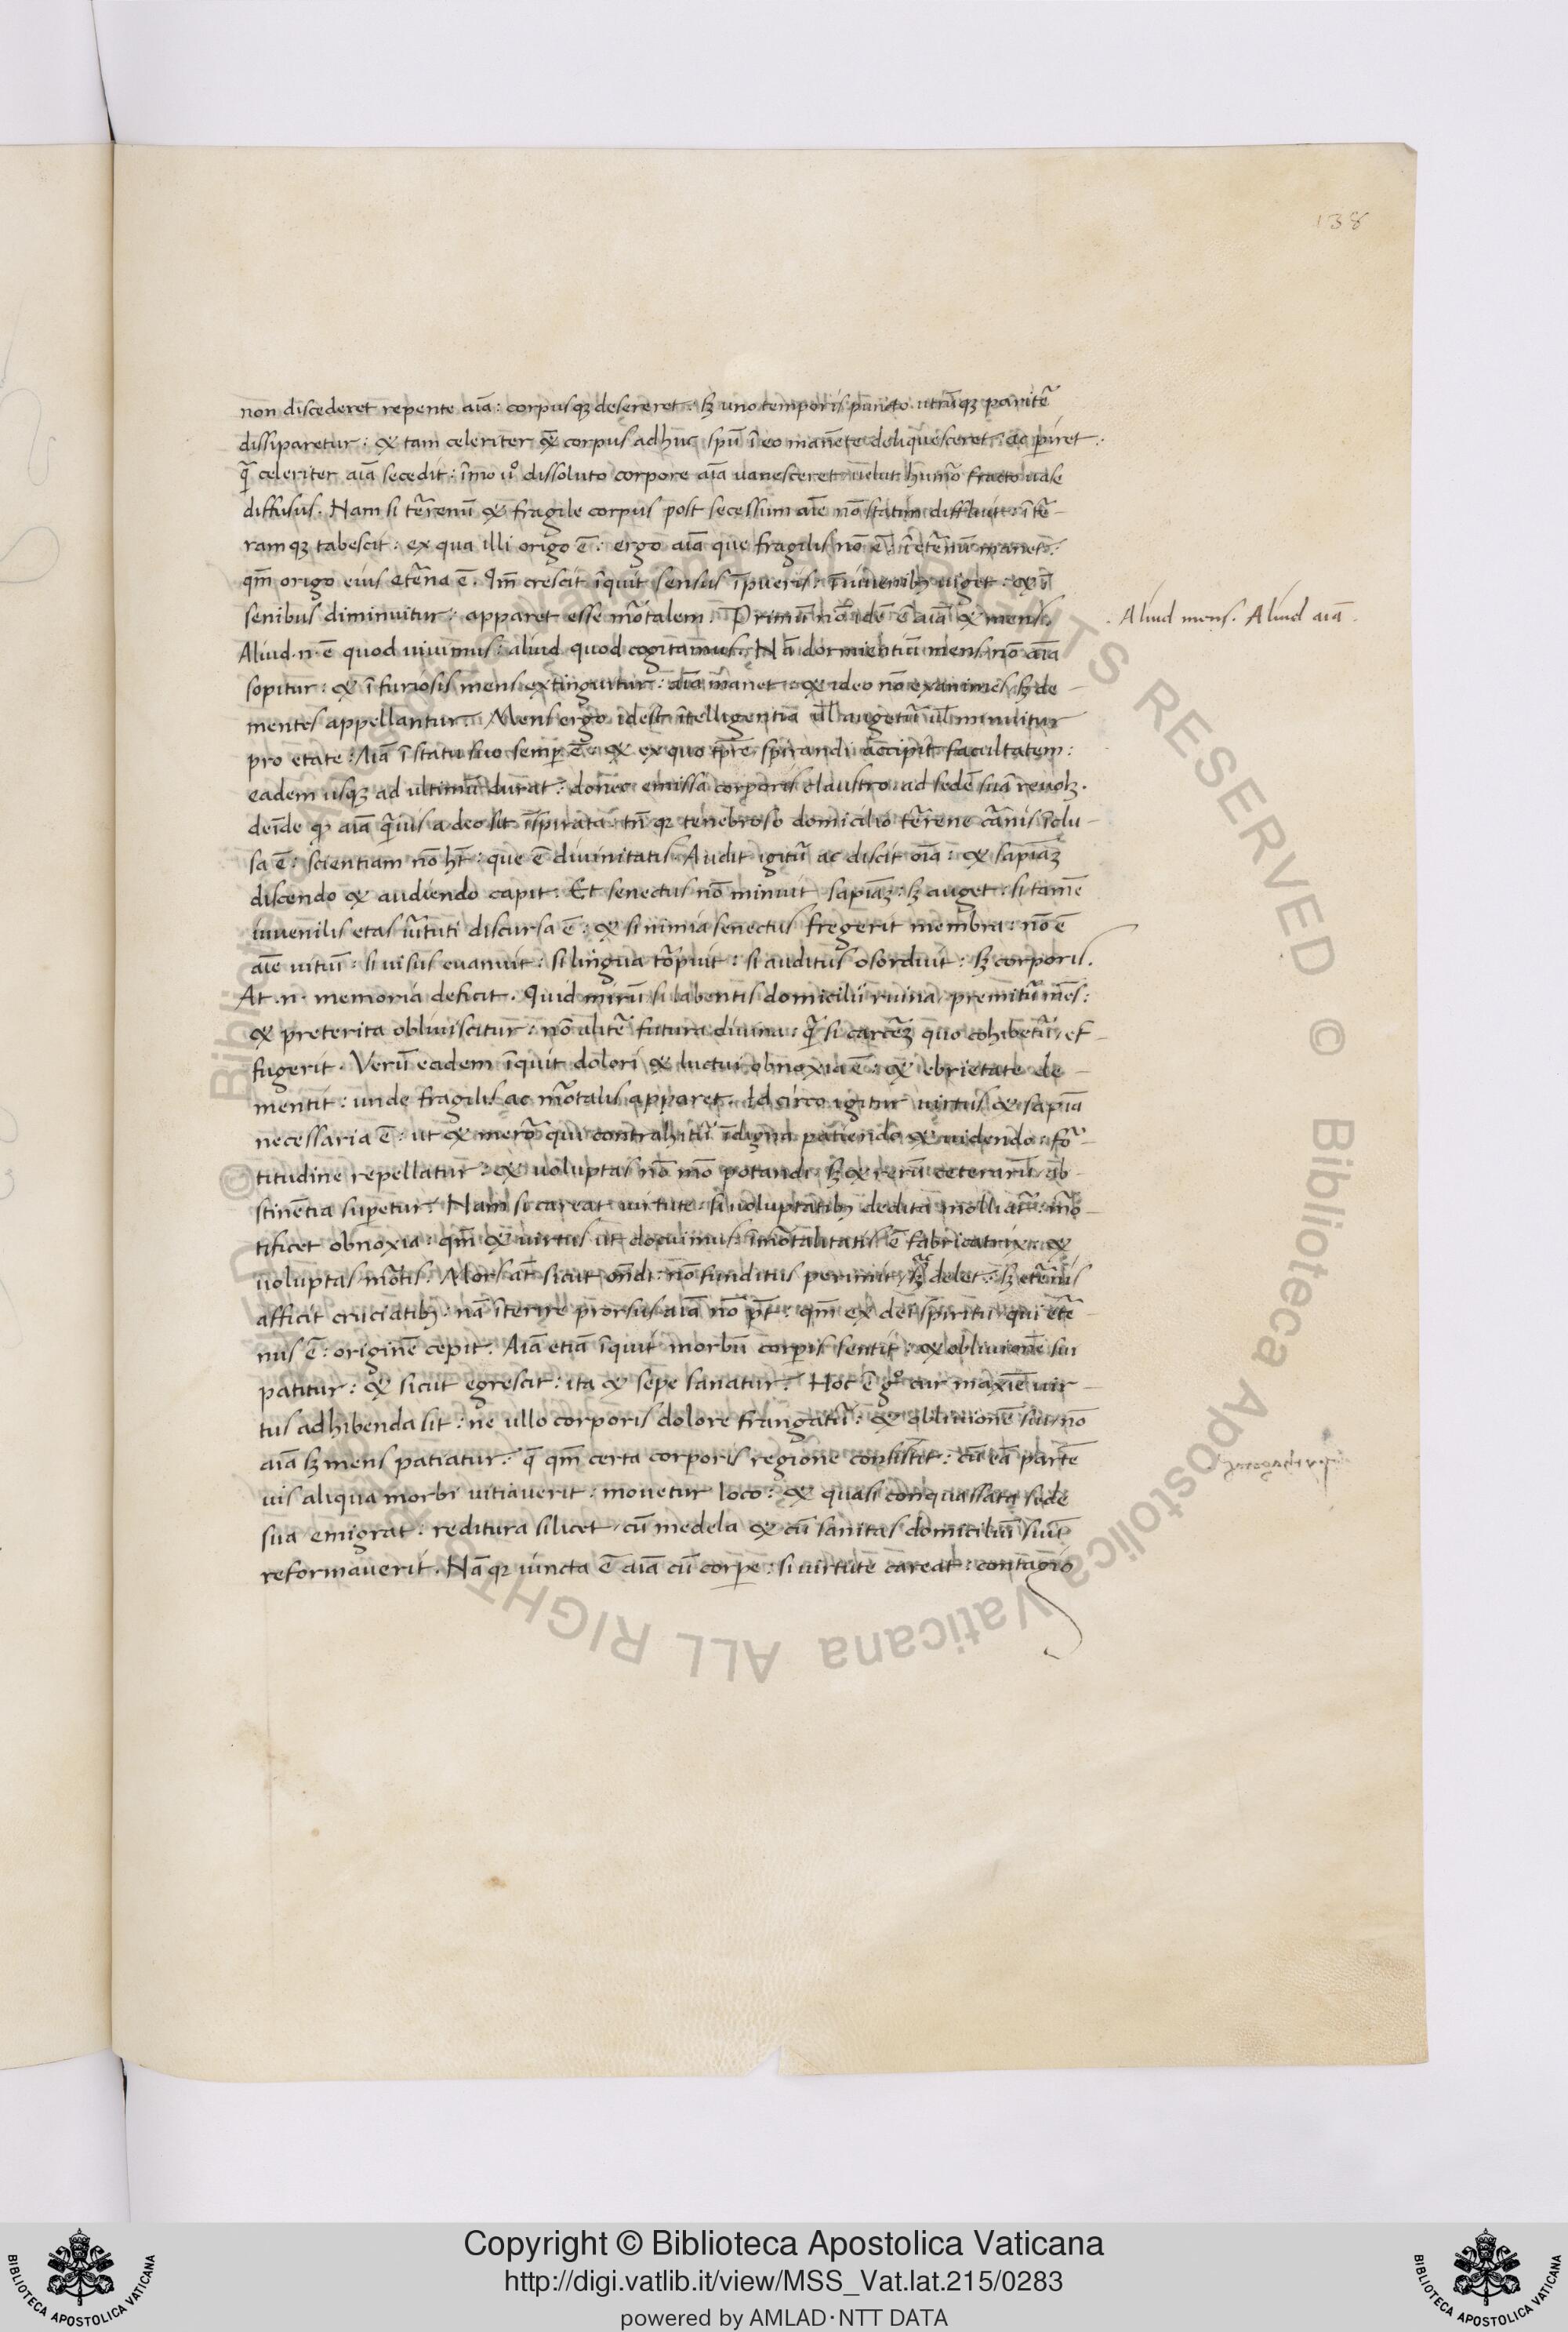 138
non discederet repente aīa: corpusqꝫ desereret. sꝫ uno temporis puncto utrūqꝫ paritẽ
dissiparetur: & tam celeriter q̄ corpus adhuc spū ī eo manēte deliquesceret: ac piret.
q̄ celeriter aīa secedit: īmo uº dissoluto corpore aīa uanesceret uelut humõ fracto uase
diffusus. Nam si tẽrenū & fragile corpus post secessum aīe nō statim diffluit: ī tẽ-
ramqꝫ tabescit: ex qua illi origo ē: ergo aīa que fragilis nō ē: ī etẽnū manet:
qm̄ origo eius etẽna ē. Im̄ crescit īquit sensus ī pueris: ī iuuenibꝫ uiget: & ī
senibus diminuitur: apparet esse mõtalem. Primū nō idē ē aīa & mens.
Aliud mens. Aliud aīa.
Aliud .n. ē quod uiuimus: aliud quod cogitamus. Nā dormientiū mens nō aīa
sopitur: & ī furiosis mens extinguitur: aīa manet: & ideo nō exanimes sꝫ de-
mentes appellantur. Mens ergo idest ītelligentia ul̄ augetũ ul̄ minuitur
pro etate: Aīa ī statu suo semp ē: & ex quo tp̄re spirandi accipit facultatem:
eadem usqꝫ ad ultimū durat: donec emissa corporis claustro ad sedē suā reuolꝫ.
deīde qꝫ aīa q̃uis a deo sit īspirata: tn̄ qꝫ tenebroso domicilio tẽrene cãnis īclu-
sa ē: scientiam nō ht̄: que ē diuinitatis. Audit igitũ ac discit oīa: & sapīaꝫ
discendo & audiendo capit. Et senectus nō minuit sapīaꝫ: sꝫ auget: si tamē
iuuenilis etas uĩtuti discursa ē: & si nimia senectus fregerit membra: nō ē
aīe uitiū: si uisus euanuit: si lingua tõpuit: si auditus osorduit: sꝫ corporis.
At .n. memoria deficit. Quid mirū si labentis domicilii ruina premitũ mēs:
& preterita obliuiscitur: nō alitẽ futura diuina: q̃ si carcẽꝫ quo cohibetũ, ef-
fugerit. Verū eadem īquit dolori & luctui obnoxia ē: & ebrietate de-
mentit: unde fragilis ac mõtalis apparet. Id circo igitur uirtus & sapīa
necessaria ē: ut & merõ qui contrahitũ īdigna patiendo & uidendo: fõ-
titudine repellatur: & uoluptas nō mō potandi sꝫ & rerū ceterarū: ab-
stinētia supetur. Nam si careat uirtute: si uoluptatibꝫ dedita molliat̃: mõ-
tificet obnoxia: qm̄ & uirtus ut docuimus īmõtalitatis ē fabricatrix: &
uoluptas mõtis. Mors at̄ sicut ōndi: nō funditus perimit, ac delet: sꝫ etẽnis
afficit cruciatibꝫ: nā īterire prorsus aīa nō pt̄: qm̄ ex dei spiritu qui etẽ-
nus ē: originē cepit. Aīa etiā īquit morbū corpis sentit: & obliuionē sui
patitur: & sicut egrescit: ita & sepe sanatur. Hoc ē gº cur maxīe uir-
tus adhibenda sit: ne ullo corporis dolore frangatũ: & obliuionē sui nō
aīa sꝫ mens patiatur. q̄ qm̄ certa corporis regione consistit: cū eā partē
uis aliqua morbi uitiauerit: mouetur loco: & quasi conquassata sede
sua emigrat: reditura silicet, cū medela & cū sanitas domiciliū suū
reformauerit. Nā qꝫ iuncta ē aīa cū corpe: si uirtute careat: contagio
© Biblioteca Apostolica Vaticana ALL RIGHTS RESERVED
Copyright © Biblioteca Apostolica Vaticana
http://digi.vatlib.it/view/MSS_Vat.lat.215/0283
powered by AMLAD·NTT DATA
BIBLIOTECA APOSTOLICA VATICANA
BIBLIOTECA APOSTOLICA VATICANA